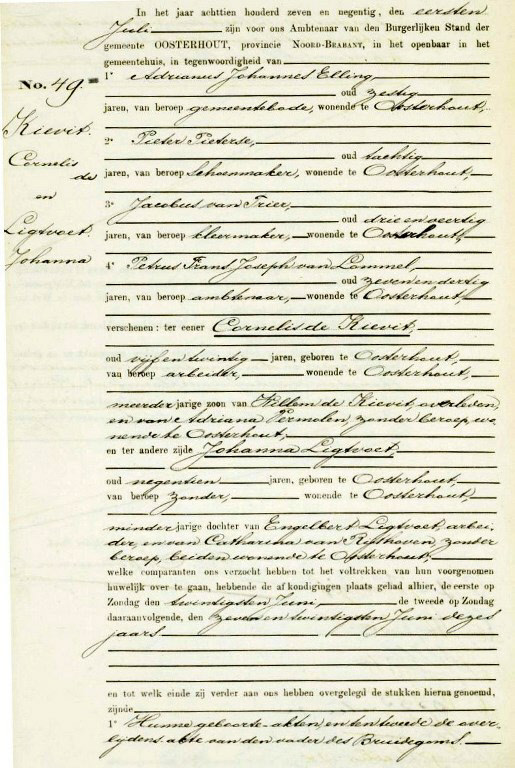 In het jaar achttien honderd zeven en negentig, den eersten
Juli zijn voor ons Ambtenaar van den Burgerlijken Stand der
gemeente OOSTERHOUT, provincie NOORD-BRABANT, in het openbaar in het
gemeentehuis, in tegenwoordigheid van
No. 49.
Kievit
Cornelis
de
en
Ligtvoet
Johanna
1° Adrianus Johannes Elling,
oud zestig
jaren, van beroep gemeentebode, wonende te Oosterhout,
2° Pieter Pieterse,
oud tachtig
jaren, van beroep Schoenmaker, wonende te Oosterhout,
3° Jacobus van Trier,
oud drie en veertig
jaren, van beroep kleermaker, wonende te Oosterhout,
4° Petrus Frans Joseph van Lommel,
oud zeven en dertig
jaren, van beroep ambtenaar, wonende te Oosterhout,
verschenen: ter eener Cornelis de Kievit,
oud vijf en twintig jaren, geboren te Oosterhout,
van beroep arbeider, wonende te Oosterhout,
meerder jarige zoon van Willem de Kievit, overleden,
en van Adriana Vermolen, zonder beroep, wo-
nende te Oosterhout,
en ter andere zijde Johanna Ligtvoet,
oud negentien jaren, geboren te Oosterhout,
van beroep zonder, wonende te Oosterhout,
minder jarige dochter van Engelbert Ligtvoet, arbei-
der, en van Catharina van zonder
beroep, beiden wonende te Oosterhout,
welke comparanten ons verzocht hebben tot het voltrekken van hun voorgenomen
huwelijk over te gaan, hebbende de afkondigingen plaats gehad alhier, de eerste op
Zondag den twintigsten Juni, de tweede op Zondag
daaraanvolgende, den zeven en twintigsten Juni dezes
jaars
en tot welk einde zij verder aan ons hebben overgelegd de stukken hierna genoemd,
zijnde
1° Hunne geboorte-akten, en ten tweede de over-
lijdens akte van den vader des Bruidegoms.